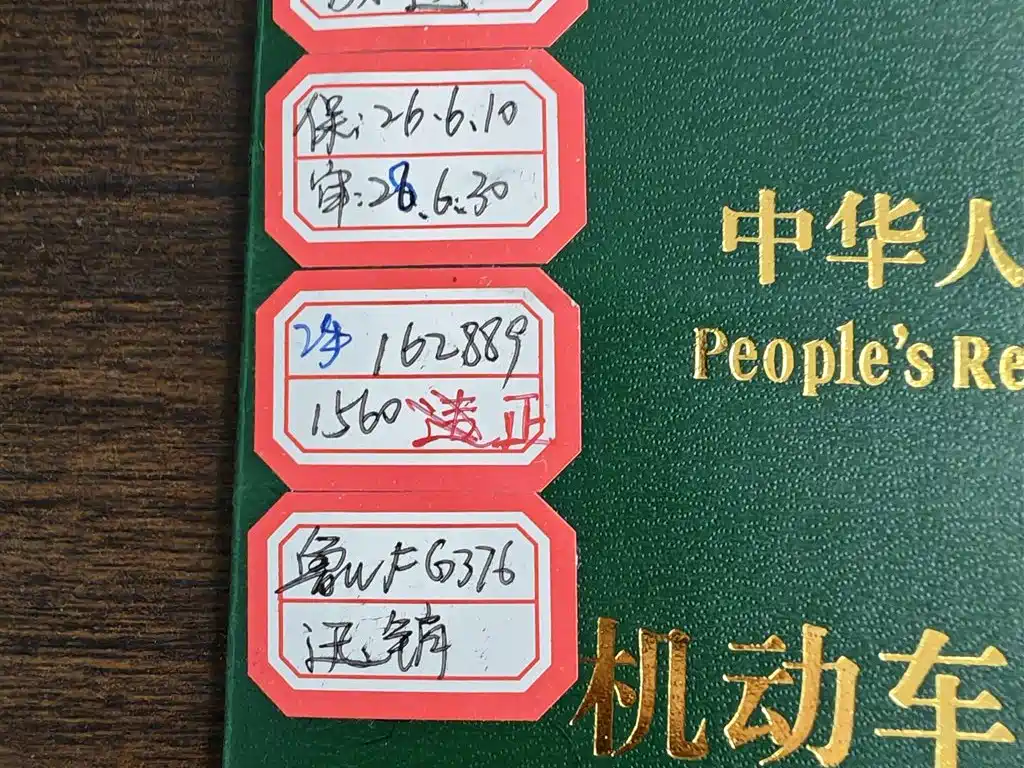 保:26.6.10
审:28.6.30
162889
1560 违 正
鲁W F6376
迅销
中华人
People's Re
机动车